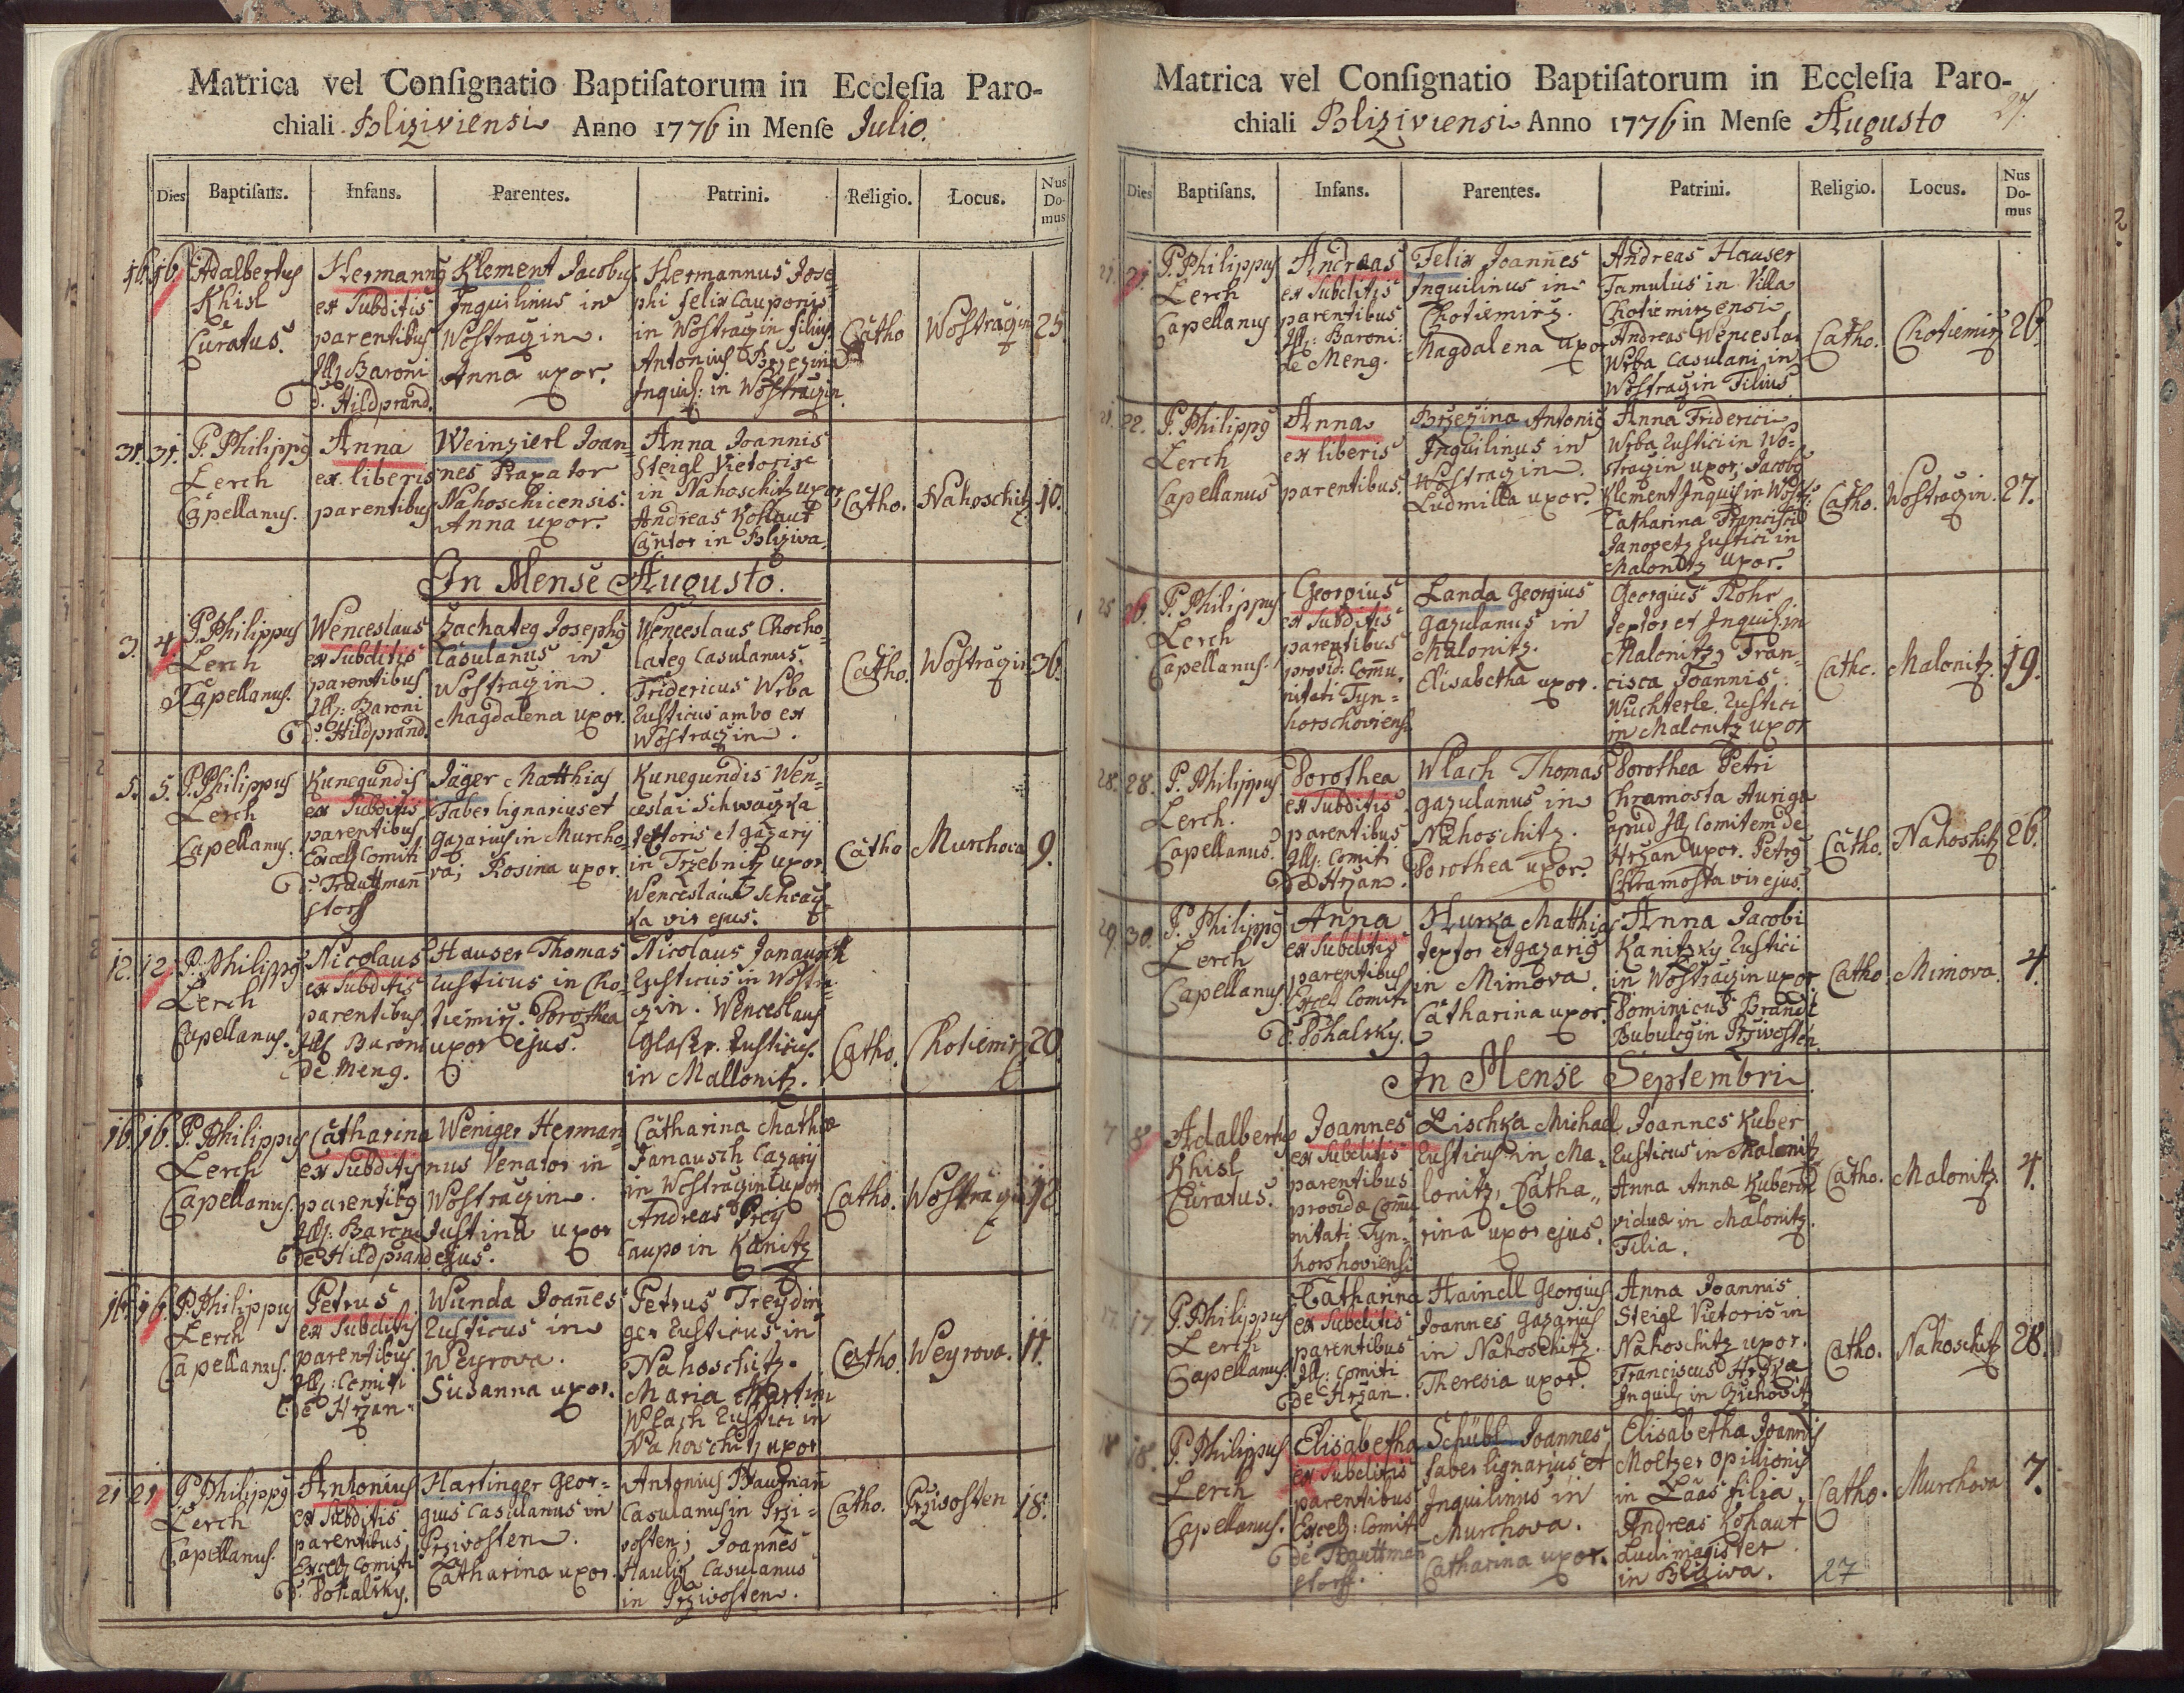 Matrica vel Consignatio Baptisatorum in Ecclesia Paro-
chiali Bliziviensi Anno 1776 in Mense Julio.
Dies Baptisans. Infans. Parentes. Patrini. Religio. Locus. Nus Do- mus
16. 16. Adalbertus Khisl Curatus.
Hermannus ex Subditis parentibus Ill: Baroni d: Hildprand.
Klement Jacobus Inquilinus in Wostraczin. Anna uxor.
Hermannus Jose-
phi felix Cauponis
in Wostraczin filius
Antonius Brzezina
Inquil: in Wostraczin.
Catho Wostraczin 25.
31. 31. P. Philippus Lerch Capellanus.
Anna ex liberis parentibus
Weinzierl Joan-
nes Praxator
Nahoschicensis.
Anna uxor.
Anna Joannis
Steigl Vietoris
in Nahoschitz uxor
Andreas Kohaut
Cantor in Bliziva.
Catho. Nahoschitz 40.
In Mense Augusto.
3. 4. P. Philippus Lerch Capellanus.
Wenceslaus ex Subditis parentibus Ill: Baroni d: Hildprand.
Zachateg Josephus
Casulanus in
Wostraczin.
Magdalena uxor.
Wenceslaus Chocho-
lateg Casulanus.
Fridericus Wrba
Rusticus ambo ex
Wostraczin.
Catho. Wostraczin 36.
5. 5. P. Philippus Lerch Capellanus.
Kunegundis ex Subditis parentibus Excell Comiti d: Trauttmann storff
Jäger Matthias
Faber lignarius et
gazarius in Murcho-
va; Rosina uxor.
Kunegundis Wen-
ceslai Schwaczka
textoris et gazarij
in Trzebnitz uxor.
Wenceslaus
vir ejus.
Catho Murchova 9.
12. 12. P. Philippus Lerch Capellanus.
Nicolaus ex Subditis parentibus Ill Baroni de Meng.
Hauser Thomas
Rusticus in Cho-
tiemirz. Dorothea
uxor ejus.
Nicolaus Janausch
Rusticus in Wostra-
czin. Wenceslaus
Rusticus
in Mallonitz.
Catho. Chotiemirz 20
16. 16. P. Philippus Lerch Capellanus.
Catharina ex Subditis parentibus Ill: Baroni de Hildprand
Weniger Herman-
nus Venator in
Wostraczin.
Justina uxor
ejus.
Catharina Mathiæ
Janausch Gazarij
in Wostraczin uxor
Andreas Prey
Caupo in Kanitz
Catho. Wostraczin 12
16. 16. P. Philippus Lerch Capellanus.
Petrus ex Subditis parentibus Ill: Comiti de Hrzan.
Wunda Joannes
Rusticus in
Weyrova.
Susanna uxor.
Petrus Treydin-
ger Rusticus in
Nahoschitz.
Maria Martini
Wlach Rustici in
Nahoschitz uxor
Catho. Weyrova. 11.
21 21. P. Philippus Lerch Capellanus.
Antonius ex Subditis parentibus Excell Comiti d: Pohalsky.
Hartinger Geor-
gius Casulanus in
Przivosten.
Catharina uxor.
Antonius
Casulanus in Przi-
vosten; Joannes
Haulik Casulanus
in Przivosten.
Catho. Przivosten 18.
Matrica vel Consignatio Baptisatorum in Ecclesia Paro-
chiali Bliziviensi Anno 1776 in Mense Augusto
27.
Dies Baptisans. Infans. Parentes. Patrini. Religio. Locus. Nus Do- mus
21. 21. P. Philippus Lerch Capellanus
Andreas ex Subditis parentibus Ill: Baroni: de Meng.
Felix Joannes
Inquilinus in
Chotiemirz.
Magdalena uxor
Andreas Hauser
Famulus in Villa
Chotiemirzensi
Andreas Wenceslai
Wrba Casulani in
Wostraczin Filius
Catho. Chotiemirz 26.
21. 22. P. Philippus Lerch Capellanus
Anna ex liberis parentibus.
Brzezina Antonius
Inquilinus in
Wostraczin.
Ludmilla uxor.
Anna Friderici
Wrba Rustici in Wo-
straczin uxor; Jacobus
Klement Inquil in Wostr:
Catharina Francisci
Janopetz Rustici in
Malonitz uxor.
Catho. Wostraczin. 27.
25 26. P. Philippus Lerch Capellanus.
Georgius ex Subditis parentibus provid: Commu-
nitati Tyn-
horschoviens:
Landa Georgius
gazulanus in
Malonitz.
Elisabetha uxor.
Georgius Rohr
Textor et Inquil: in
Malonitz, Fran-
cisca Joannis
Wuchterle Rustici
in Malonitz uxor
Catho. Malonitz. 19.
28. 28. P. Philippus Lerch. Capellanus.
Dorothea ex Subditis parentibus Ill: Comiti de Hrzan.
Wlach Thomas
gazulanus in
Nahoschitz.
Dorothea uxor.
Dorothea Petri
Chramosta Auriga
apud Ill Comitem de
Hrzan uxor. Petrus
Chramosta vir ejus.
Catho. Nahoshitz 26.
29. 30. P. Philippus Lerch Capellanus.
Anna ex Subditis parentibus Excel Comiti d: Pohalsky.
Hurka Matthias
Textor et gazarius
in Mimova.
Catharina uxor.
Anna Jacobi
Kanitzky Rustici
in Wostraczin uxor
Dominicus Brandl
Bubulcg in Przivosten.
Catho. Mimova. 4.
In Mense Septembri
7 8. Adalbertus Khisl Curatus.
Joannes ex Subditis parentibus providæ Commu-
nitati Tyn-
horshoviensi
Lischka Michael
Rusticus in Ma-
lonitz, Catha-
rina uxor ejus.
Joannes Kuber
Rusticus in Malonitz
Anna Annæ Kuberin
viduæ in Malonitz.
Filia.
Catho. Malonitz. 4.
17. 17. P. Philippus Lerch Capellanus.
Catharina ex Subditis parentibus Ill: Comiti de Hrzan.
Haindl Georgius
Joannes Gazarius
in Nahoschitz.
Theresia uxor.
Anna Joannis
Steigl Vietoris in
Nahoschitz uxor.
Franciscus
Inquil in
Catho. Nahoschitz 28.
18 18. P. Philippus Lerch Capellanus.
Elisabetha ex Subditis parentibus Excell: Comiti de Trauttman storff.
Schübl Joannes
faber lignarius et
Inquilinus in
Murchova.
Catharina uxor.
Elisabetha Joannis
Moltzer Opilionis
in Laas filia.
Andreas Kohaut
Ludimagister
in Bliziva.
Catho. Murchova 7.
27